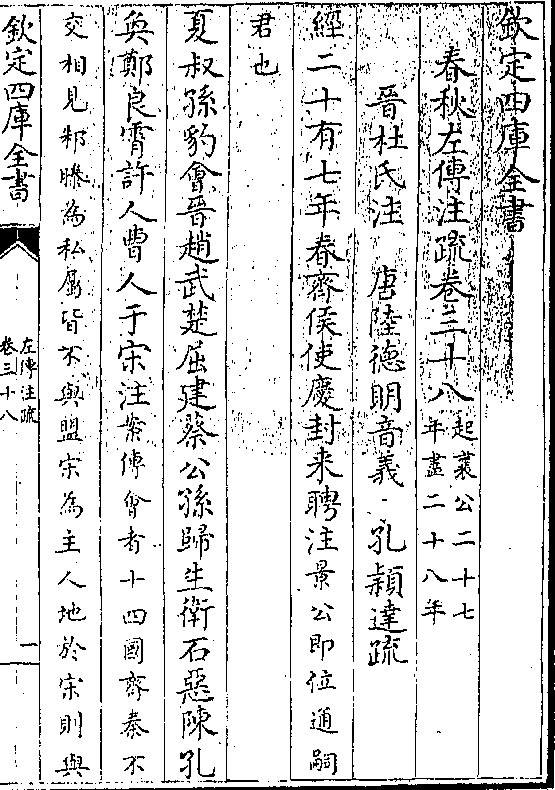 欽定四庫全書
春秋左傳注疏卷三十八
起襄公二十七
年盡二十八年
晉杜氏注 唐陸德明音義 孔穎達疏
經二十有七年春齊侯使慶封来聘注景公即位通嗣
君也
夏叔孫豹會晉趙武楚屈建蔡公孫歸生衛石惡陳孔
奐鄭良霄許人曹人于宋注案傳會者十四國齊秦不
交相見邾滕為私屬皆不與盟宋為主人地於宋則與
欽定四庫全書
左傳注疏
卷三十八
一